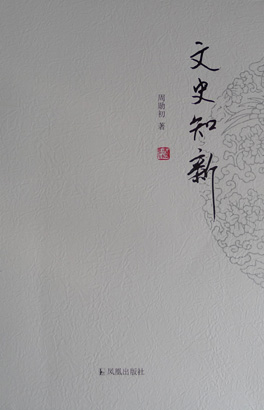 文史知新
周勛初 著
凤凰出版社